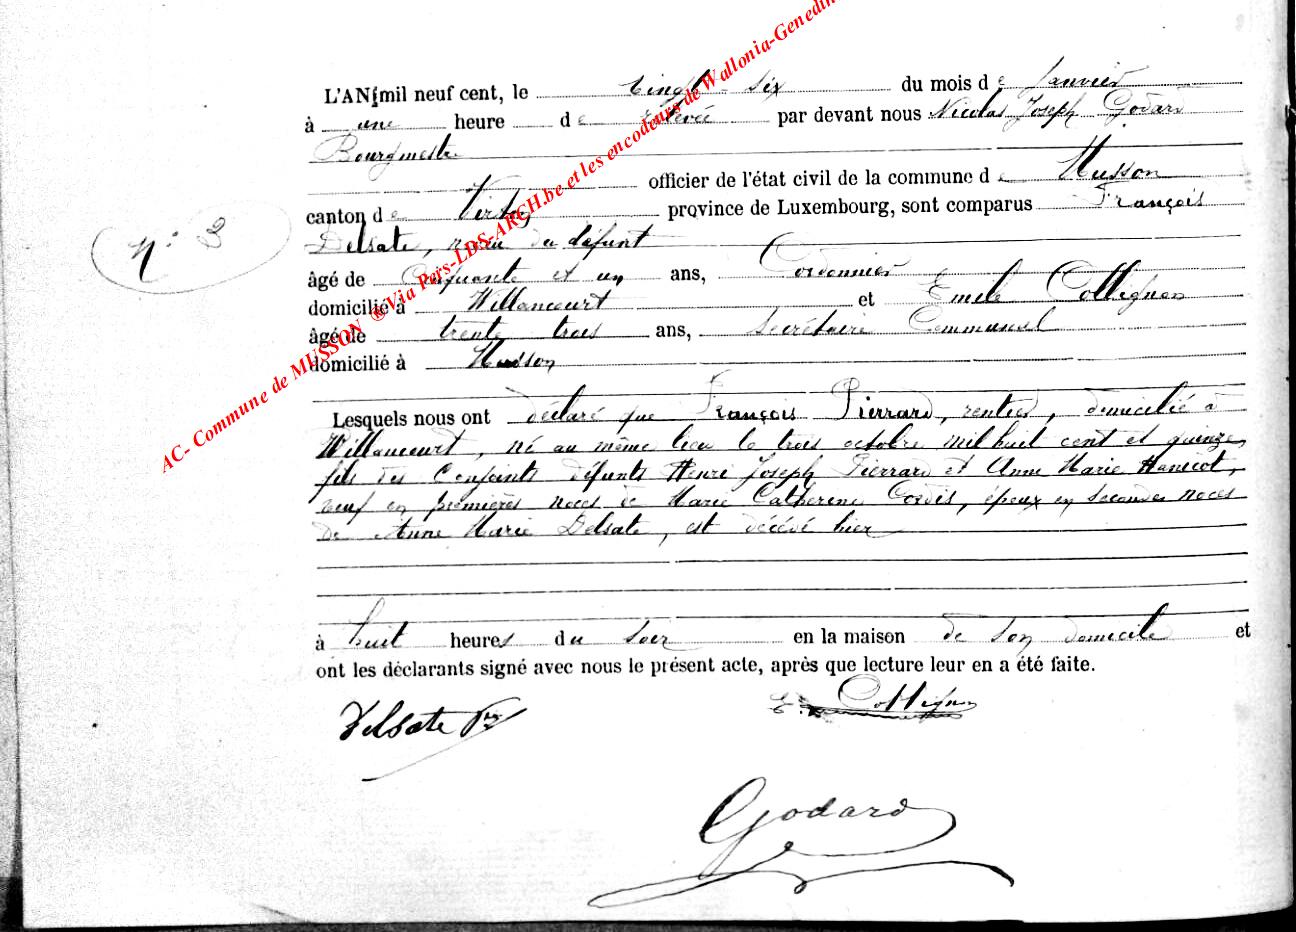 AC- Commune de MUSSON ® Via Pers-LDS-ARCH.be et les encodeurs de Wallonia-Genedin
L'AN mil neuf cent, le vingt six du mois de Janvier
à une heure de relevée par devant nous Nicolas Joseph Godard
Bourgmestre
officier de l'état civil de la commune de Musson
canton de Virton province de Luxembourg, sont comparus François
Delsate, neveu du défunt
âgé de Cinquante et un ans, Cordonnier
domicilié à Willancourt et Emile Collignon
âgé de trente trois ans, Secrétaire Communal
domicilié à Musson
N° 3
Lesquels nous ont déclaré que François Pierrard, rentier, domicilié à
Willancourt, né au même lieu le trois octobre mil huit cent et quinze,
fils des Conjoints défunts Henri Joseph Pierrard et Anne Marie Hanicot,
veuf en premières noces de Marie Catherine Cordis, époux en secondes noces
de Anne Marie Delsate, est décédé hier
à huit heures du soir en la maison de son domicile et
ont les déclarants signé avec nous le présent acte, après que lecture leur en a été faite.
Delsate E. Collignon
Godard